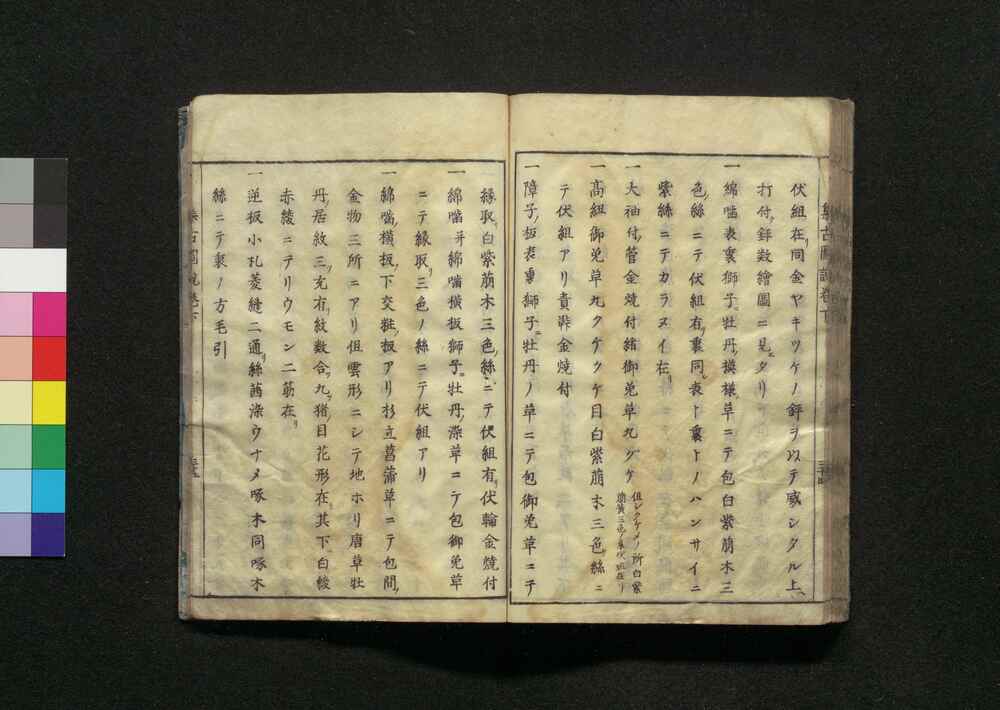 伏組在リ同金ヤキツケノ鋲ヲ以テ威シタル上ヘ
打付ル鋲数繪圖ニ見ヘタリ
一綿噛表裏獅子ニ牡丹ノ模様ノ草ニテ包白紫萠木三
色ノ絲ニテ伏組有リ裏同シ表ト裏トノハンサイニ
紫絲ニテカラヌイ在リ
一大袖付ノ菅金燒付緒御免草丸グケ
一高紐御免草丸クケクケ目白紫萠木三色ノ絲ニ
テ伏組アリ責鞐金燒付
一障子ノ板表裏獅子ニ牡丹ノ草ニテ包御免草ニテ
縁取リ白紫萠木三色ノ絲ニテ伏組有リ伏輪金燒付
一綿噛并綿噛横板獅子ニ牡丹ノ染草ニテ包御免草
ニテ縁取リ三色ノ絲ニテ伏組アリ
一綿噛ノ横板ノ下交粧ノ板アリ杉立菖蒲草ニテ包間ノ
金物三所ニアリ但雲形ニシテ地ホリ唐草牡
丹ノ居紋三ツ充有リ紋数合九ツ猪目花形在其下白綾
赤綾ニテリウモン二筋在リ
一逆板小札菱縫二通リ絲茜染ウナメ啄木同啄木
絲ニテ裏ノ方毛引